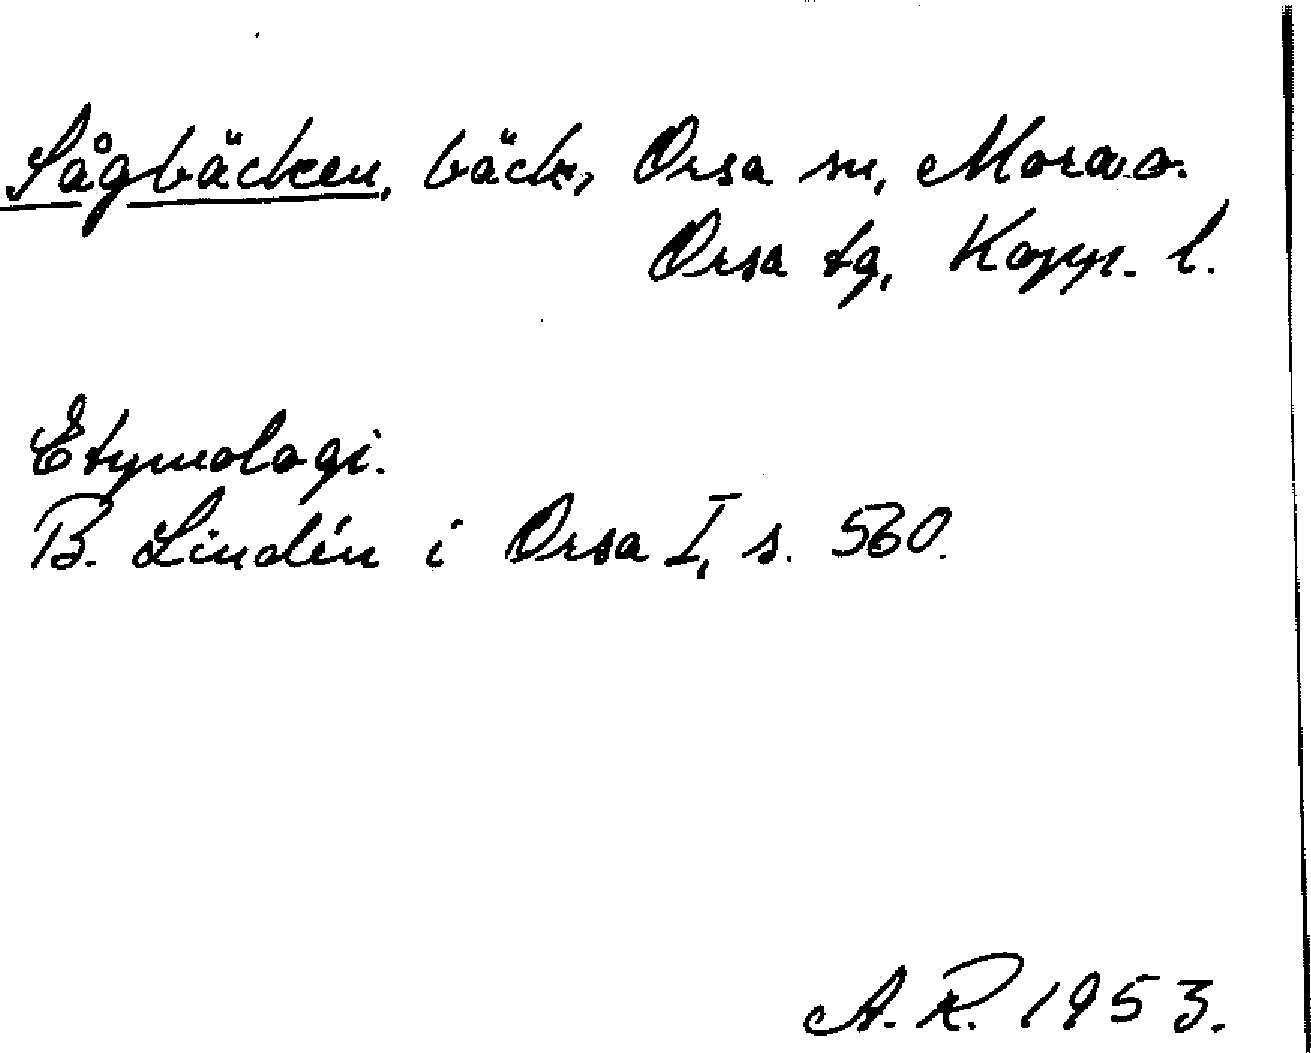 Sågbäcken, bäck, Orsa sn, Mora o.
Orsa tg, Kopp. l.
Etymologi.
B. Lindén i Orsa I, s. 560.
A. R. 1953.